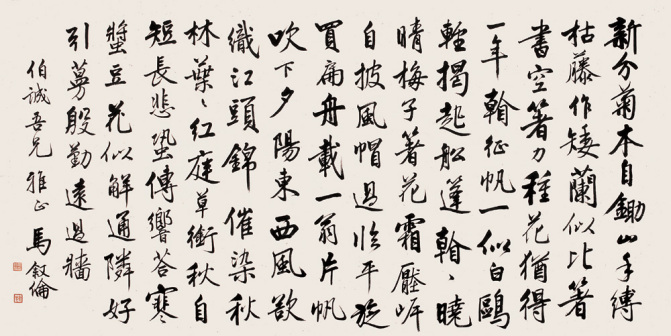 新分菊本自鋤山手縛
枯藤作矮蘭似比著
書空著力種花猶得
一年翰征帆一似白鷗
輕揭起船篷翰〻曉
晴梅子著花霜壓岸
自披風帽過臨平旋
買扁舟載一翁片帆
吹下夕陽東西風欲
織江頭錦催染秋
林葉〻紅庭草銜秋自
短長悲蛩傳響答寒
螿豆花似解通隣好
引蔓殷勤遠過牆
伯誠吾兄雅正 馬叙倫